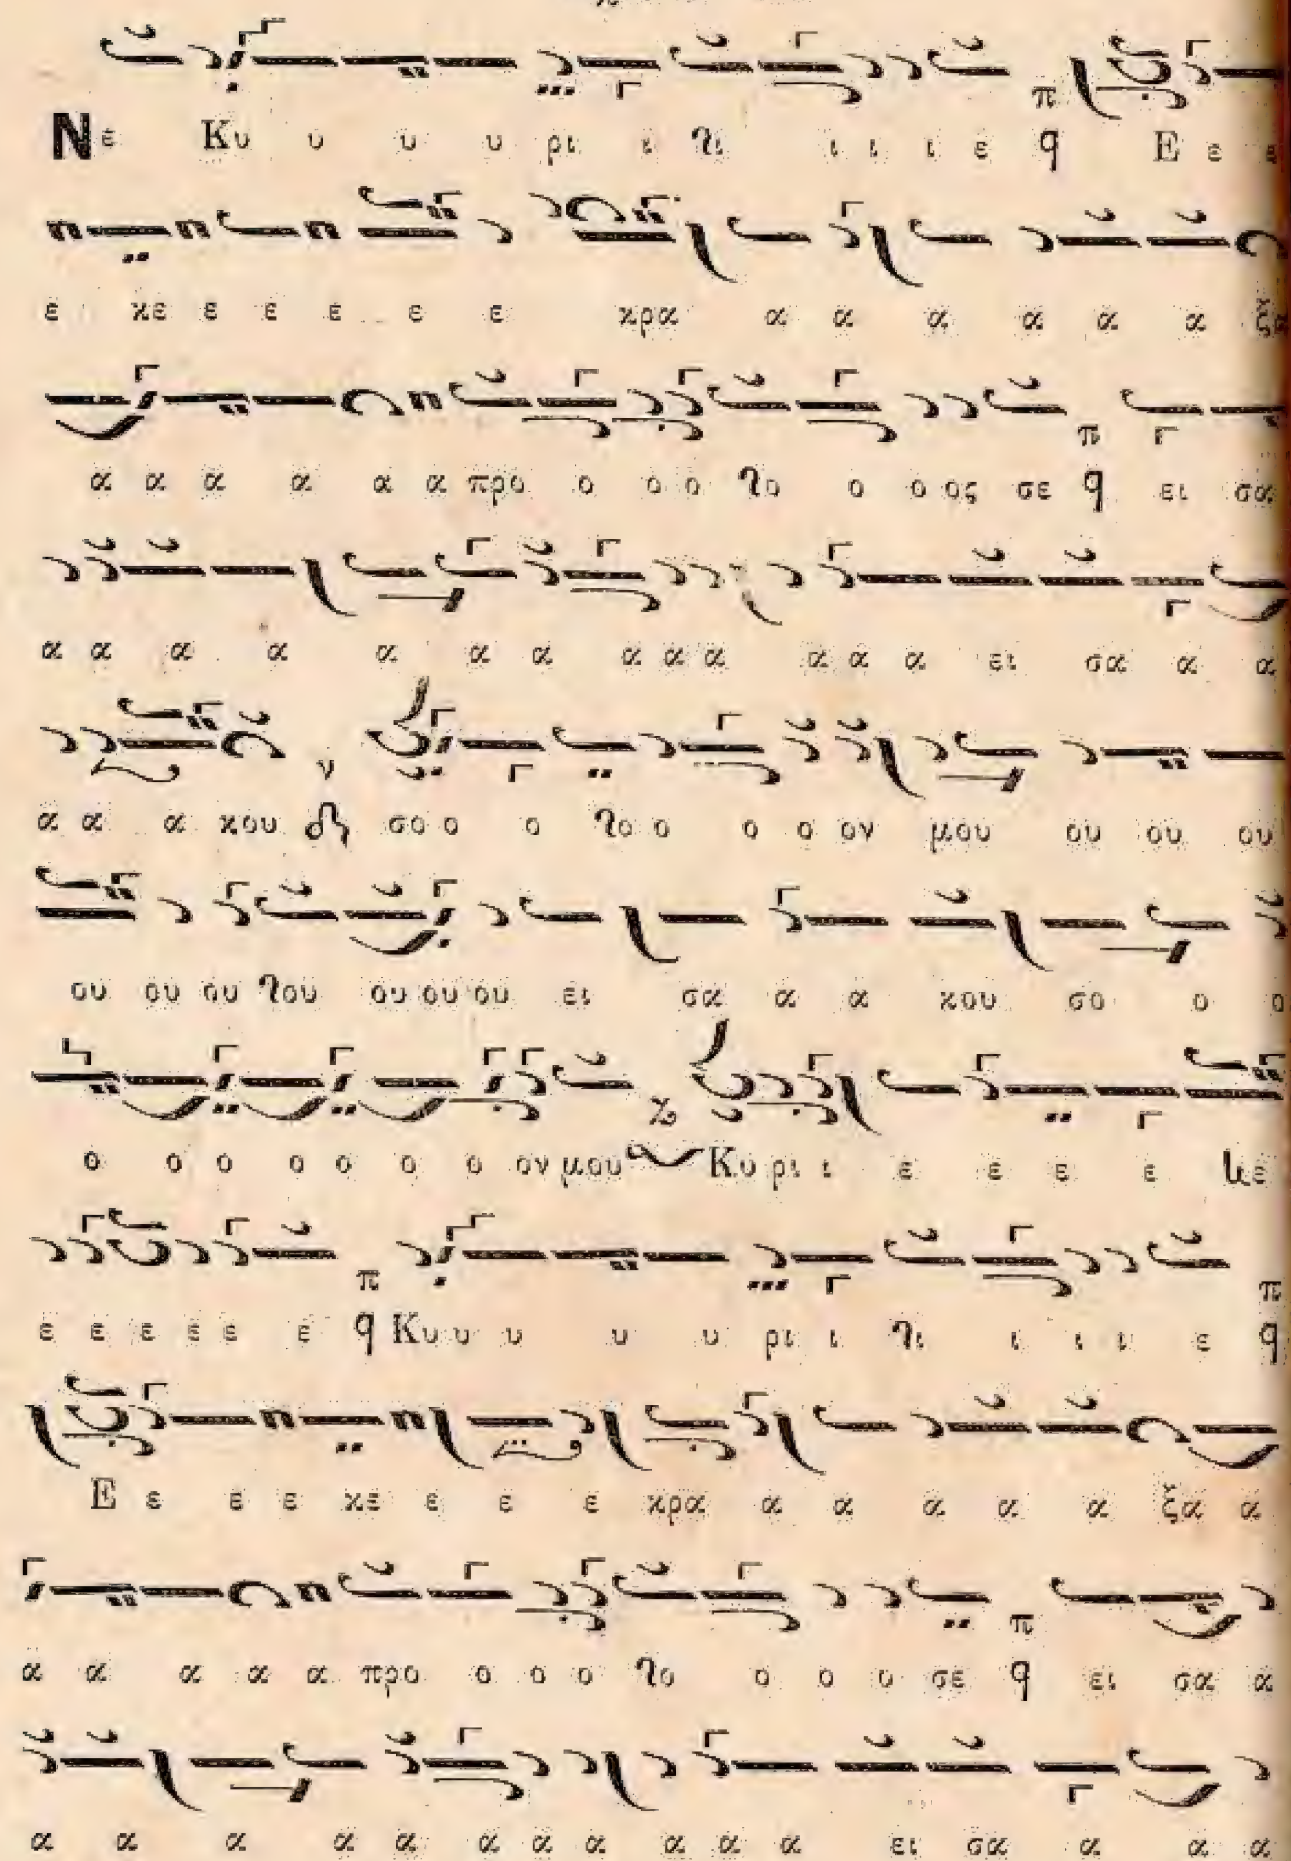 Νε Κυ υ υ υ ρι ι ι ι ι ι ε π q Ε ε ε
ε κε ε ε ε ε ε κρα α α α α α α ξα
α α α α α α προ ο ο ο το ο ο ος σε π q ει σα
α α α α α α α α α α α α α ει σα α α
α α α κου ν σο ο ο το ο ο ο ον μου ου ου ου
ου ου ου του ου ου ου ει σα α α κου σο ο ο
ο ο ο ο ο ο ο ον μου Κυ ρι ι ε ε ε ε
ε ε ε ε ε ε π q Κυ υ υ υ υ ρι ι ι ι ι ε π q
Ε ε ε ε κε ε ε ε κρα α α α α α ξα α
α α α α α προ ο ο ο το ο ο ο σε π q ει σα α
α α α α α α α α α α α ει σα α α α